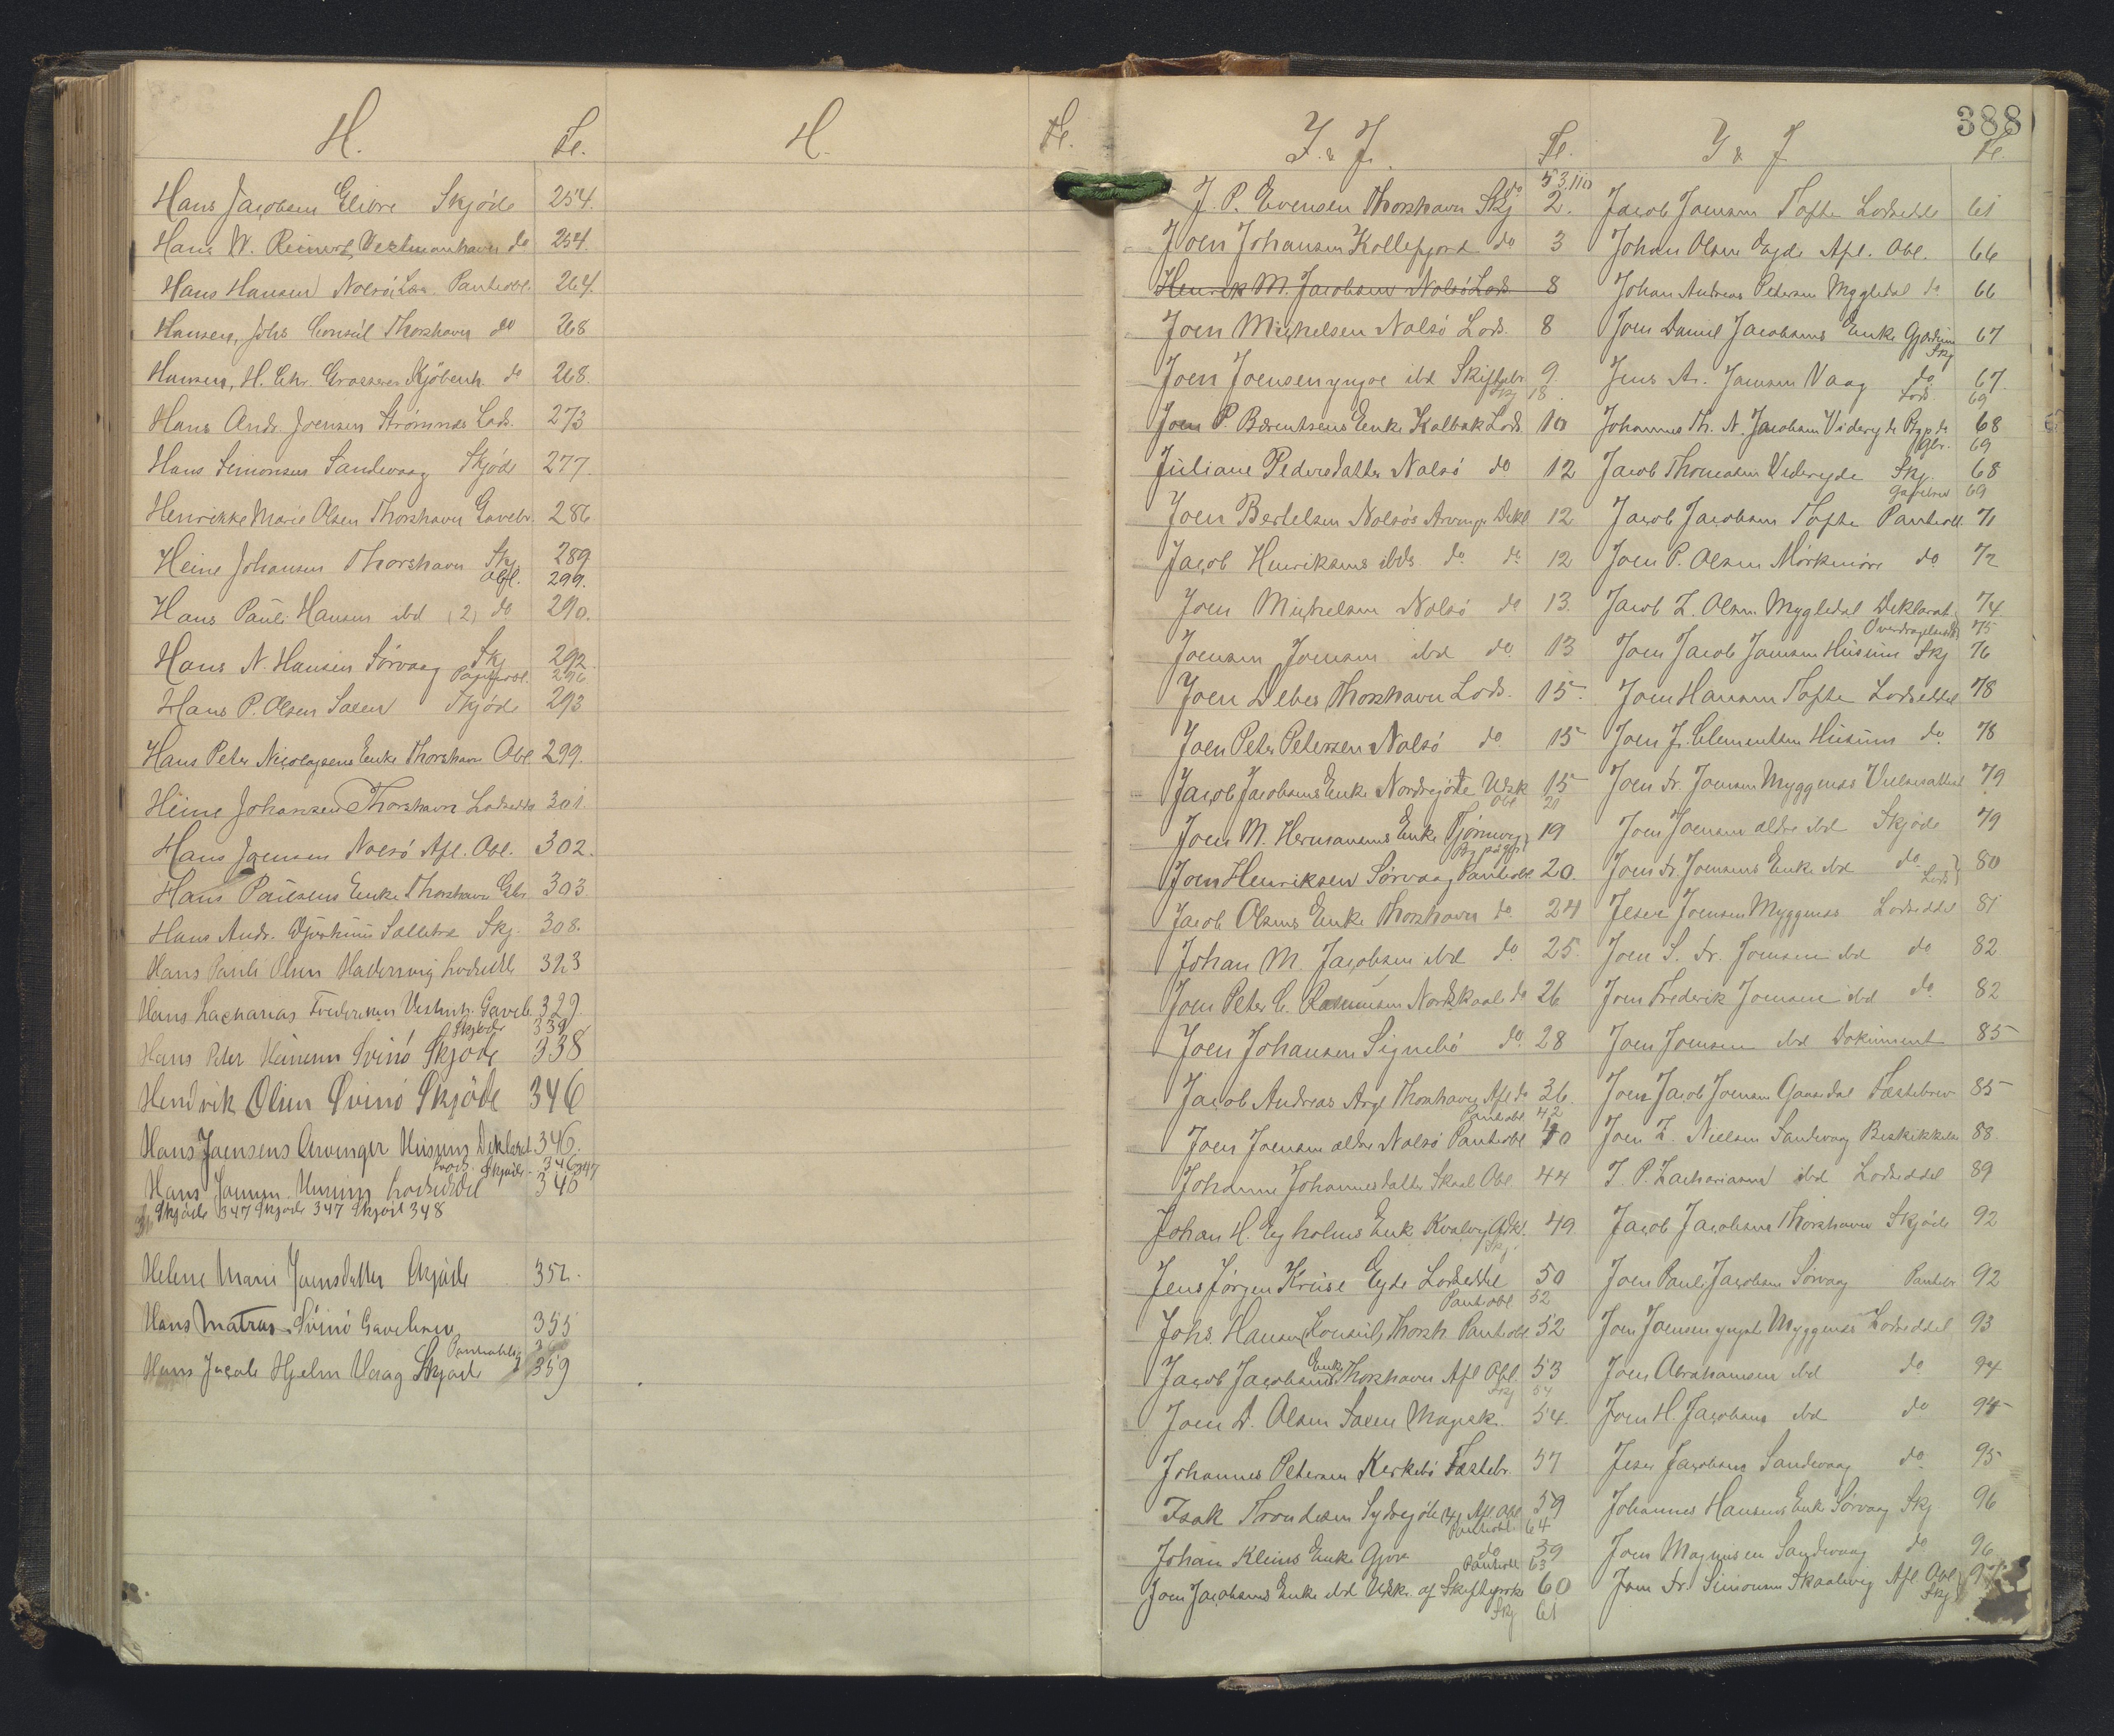 H. Fe. H. Fe.
Hans Jacobsen Elibre Skjöde 254.
Hans W. Reinert, Vestmanhavn do 254.
Hans Hansen Nolsö Pantobl. 264.
Hansen, Johs Consúl Thorshavn do 268
Hansen, H. Chr. Grosserer Kjöbenh. do 268.
Hans Andr. Joensen Strömnæs Lods. 273
Hans Simonsen Sandevaag Skjöde 277.
Henrikke Marie Olsen Thorshavn Gavebr. 286
Heine Johansen Thorshavn Skj 289
Obl. 299.
Hans Paúli Hansen ibd (2) do 290.
Hans N. Hansen Sörvaag Skj 292.
Pantobl. 296
Hans P. Olsen Saxen Skjöde 293
Hans Peter Nicolajsens Enke Thorshavn Obl. 299.
Heine Johansen Thorshavn Lodseddel 301.
Hans Joensen Nolsö Afl. Obl. 302.
Hans Paúlsens Enke Thorshavn 303.
Hans Andr. Djúrhúús Selletræ Skj. 308.
Hans Pauli Olsen Haldersvig Lodseddel 323
Hans Zacharias Frederiksen Vestmh. Gaveb. 329.
Skjøde 339
Hans Peter Heinesen Svinö Skjøde 338
Hendrik Olsen Svinö Skjöde 346
Hans Joensens Arvinger Húsúm Deklarat. 346.
Lods. Skjøde 346 347
Hans Joensen Húsúm Lodseddel 346
Skjøde 347 Skjøde 347 Skjød 348
Helene Marie Joensdatter Skjøde 352.
Hans Matras Svinö Gavebrev 355
Pantobl.
Hans Jacob Hjelm Vaag Skjøde 359
388
I. & J. Fe. I & J Fe.
do 53.110
J. P. Evensen Thorshavn Skj 2.
Joen Johansen Kollefjord do 3
Henrik M. Jacobsen Nolsö Lods. 8
Joen Michelsen Nolsö Lods. 8
Joen Joensen yngre ibd Skiftebr. 9.
Skj 18.
Joen P. Bærentsens Enke Kalbak Lods. 10
Júliane Pedersdatter Nolsö do 12
Joen Bertelsen Nolsös Arvinger Dekl. 12
Jacob Henriksens ibds do do 12
Joen Michelsen Nolsö do 13.
Joensen Joensen ibd do 13
Joen Debes Thorshavn Lods. 15.
Joen Peter Petersen Nolsö do 15
Jacob Jacobsens Enke Nordregöte Udsk 15
Obl 20
Joen M. Hermansens Enke Tjörnevig 19
Joen Henriksen Sörvaag Pantobl. 20.
Jacob Olsens Enke Thorshavn do 24
Johan M. Jacobsen ibd do 25.
Joen Peter C. Rasmúsen Nordskaale do 26
Joen Johansen Signebö do. 28
Jacob Andreas Arge Thorshavn Afl do 36.
Pantobl 42
Joen Joensen ældre Nolsö Pantobl 40
Johanne Johannesdatter Skaal Obl 44
Johan H. Eyholms Enke Kvalvig Dekl. 49
Skj.
Jens Jörgen Krúse Eyde Lodseddel 50
Pantobl 52
Johs. Hansen (Consúl) Thorsh. Pantobl 52
Jacob Jacobsens Enke Thorshavn Afl Obl. 53
Skj 54
Joen D. Olsen Saxen Magesk. 54.
Johannes Petersen Kirkebö Fæstebr. 57
Isak Trondesen Sydregöte (4) Afl. Obl 59
Pantobl. 64
Johan Kleins Enke Gjov do 59
Pantobl 63
Joen Jacobsens Enke ibd Udsk. af Skifteprotk. 60
Skj 61
Jacob Joensen Tofte Lodseddel 61
Johan Olsen Eyde Afl. Obl. 66
Johan Andreas Petersen Mygledal do 66
Joen Daniel Jacobsens Enke Gjerdum 67
Skj
Jens A. Joensen Vaag do 67.
Lods. 69
Johannes Th. N. Jacobsen Videreyde do 68
69
Jacob Thomasen Videreyde Skj. 68
Gavebrev 69
Jacob Jacobsen Tofte Pantobl. 71
Joen P. Olsen Mörkmöre do 72
Jacob Z. Olsen Mygledal Deklarat. 74.
Overdragelse 75
Joen Jacob Joensen Húsúm Skj 76
Joen Hansen Tofte Lodseddel 78
Joen J. Clementsen Húsúm do. 78
Joen Fr. Joensen Myggenæs 79
Joen Joensen ældre ibd Skjöde 79
Joen Fr. Joensens Enke ibd do 80
Lods
Joen Joensen Myggenæs Lodseddel 81
Joen S. Fr. Joensen ibd do 82
Joen Frederik Joensen ibd do 82
Joen Joensen ibd Dokúment 85
Joen Jacob Joensen Gaasedal Fæstebrev 85
Joen Z. Nielsen Sandevaag Beskikkelse 88
J. P. Zachariasen ibd Lodseddel 89
Jacob Jacobsen Thorshavn Skjöde 92
Joen Paúli Jacobsen Sörvaag Pantobl. 92
Joen Joensen yngste Myggenæs Lodseddel 93
Joen Abrahamsen ibd do 94
Joen H. Jacobsens ibd do 94
Jesper Jacobsens Sandevaag do. 95
Johannes Hansens Enke Sörvaag Skj 96
Joen Magnúsen Sandevaag do 96
Joen Fr. Simonsen Skaalevig Afl Obl.
Skj